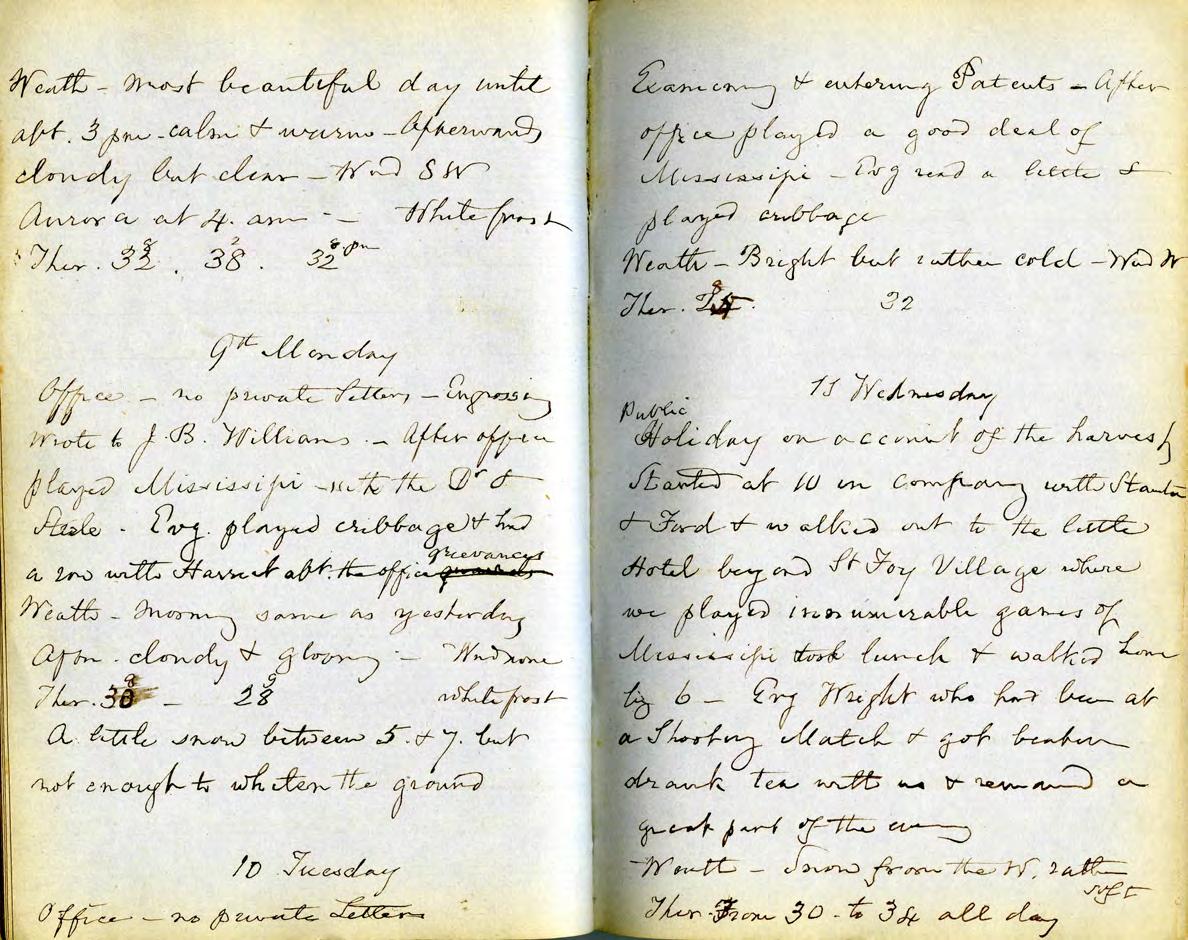 Weath - most beautiful day until
abt. 3 pm - calm & warm - Afterwards
cloudy but clear - Wnd SW
Aurora at 4. am - White frost
Ther. 32 8 . 38 2 . 32 8 pm
9th Monday
Office - no private letters - Engrossing
wrote to J. B. Williams - After office
played Mississipi with the Dr &
Steele - Evg. played cribbage & had
a row with Harriet abt. the office grievances
Weath - Morning same as yesterday
Aftn. cloudy & gloomy - Wnd none
Ther. 30 8 - 28 white frost
A little snow between 5. & 7. but
not enough to whiten the ground
10 Tuesday
Office - no private Letters
Examining & entering Patents - After
office played a good deal of
Mississipi - Evg read a little &
played cribbage
Weath - Bright but rather cold - Wnd W
Ther. 8 32
11 Wednesday
Public
Holiday on account of the harvest
Started at 10 in company with Stanton
& Ford & walked out to the little
Hotel beyond St Foy Village where
we played innumerable games of
Mississipi took lunch & walked home
by 6 - Evg Wright who had been at
a Shooting Match & got beaten
drank tea with us & remained a
great part of the evening
Weath - Snow from the W. rather
soft
Ther. From 30 - to 34 all day